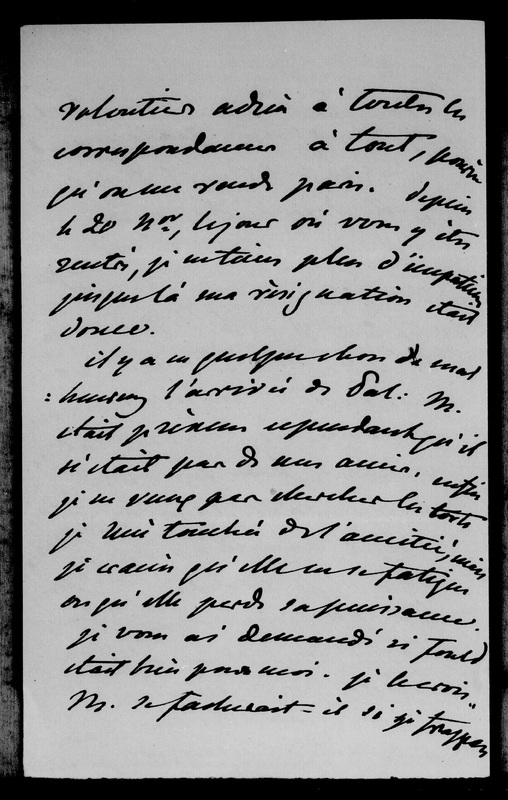 volontiers adieu à toutes les
correspondances à tout, pourvu
qu'on me rende paris. depuis
le 20 Nov, le jour où vous y êtes
rentré, je me tiens plus d'impatience
jusque là ma résignation était
douce.
il y a eu quelque chose de mal
: heureux l'arrivée de Sal: M.
était prévenu cependant qu'il
n'était pas de mes amis. enfin
je ne veux pas chercher les torts
je suis touchée de l'amitié, mais
je crains qu'elle ne se fatigue
ou qu'elle perde sa puissance.
je vous ai demandé si fould
était bien pour moi. je le crois.
M. se facherait-il si je